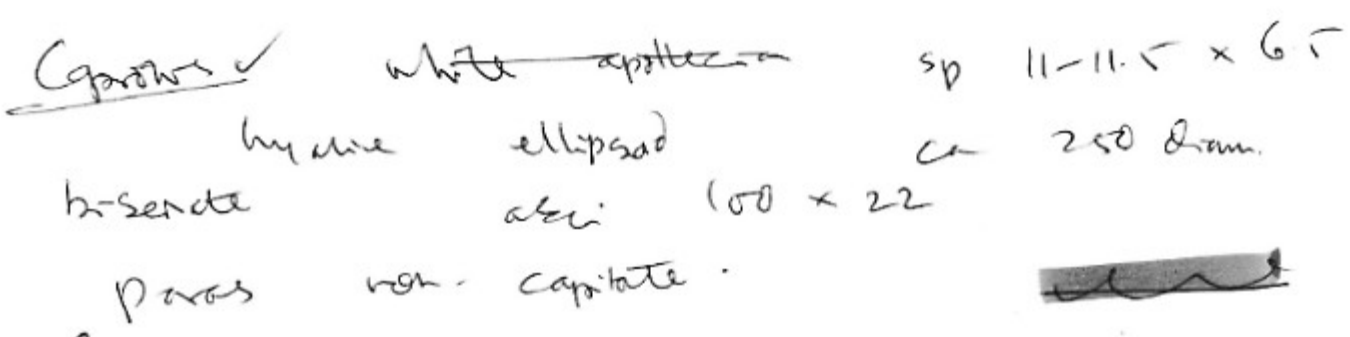 Coprotus ✓ white apothecia sp 11-11.5 × 6.5
hyaline ellipsoid ca 250 diam.
bi-seriate asci 100 × 22
paras non-capitate.